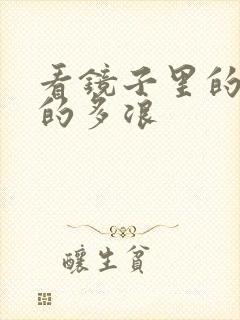 看镜子里的
的多浪
酿生贫